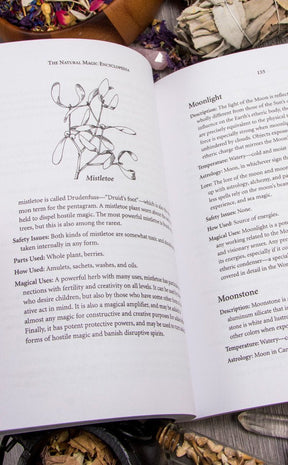 The Natural Magic Encyclopedia
Mistletoe
mistletoe is called Drudenfuss—"Druid's foot"—which is
mon term for the pentagram. A mistletoe plant
held to dispel hostile magic. The most
trees, but this is also
Safety Issues: Both kinds of mistletoe are somewhat toxic, and
taken internally in any form.
Parts Used: Whole plant, berries.
How Used: Amulets, sachets, washes, and oils.
Magical Uses: A powerful herb with many uses, mistletoe has
nections with fertility and creativity on all levels. It can be
who desire children, but also by those who have some other
ative act in mind. It is also a magical amplifier, and may be
almost any magic for constructive and creative purposes
Finally, it has potent protective powers, and may be used to
forms of hostile magic and banish disruptive spirits.
135
Moonlight
Description: The light of the Moon is reflect
wholly different from those of the Sun
influence on the Earth's etheric body, the
are precisely equivalent to the physical
force is especially strong when
unhindered by clouds. Objects expose
etheric charge that mirrors the Moon
Temperature: Watery—cold and mois
Astrology: Moon, in whichever sign th
Lore: The lore of the moon and moon
up with astrology, alchemy, and pa
less spells rely on the moon's bea
experience, and sea magic.
Safety Issues: None
How Used: Source of energies.
Magical Uses: Moonlight is a poten
any working related to the Mo
and visionary senses. Any pr
of energies, especially if con
etheric condenser—a speci
covered in detail in the Wor
Moonstone
Description: Moonstone is
aluminum silicate that is
stone is white and
other colors when expo
Temperature: Watery—co
Astrology: Moon in Can